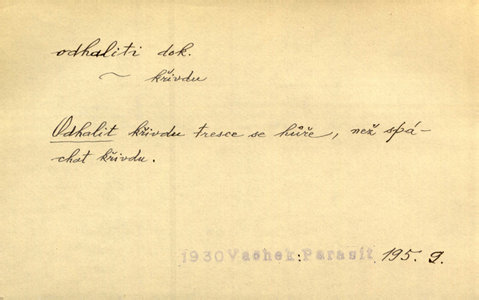 odhaliti dok.
~ křivdu
Odhalit křivdu tresce se hůře, než spá-
chat křivdu.
1930 Vachek: Parasit, 195. 9.